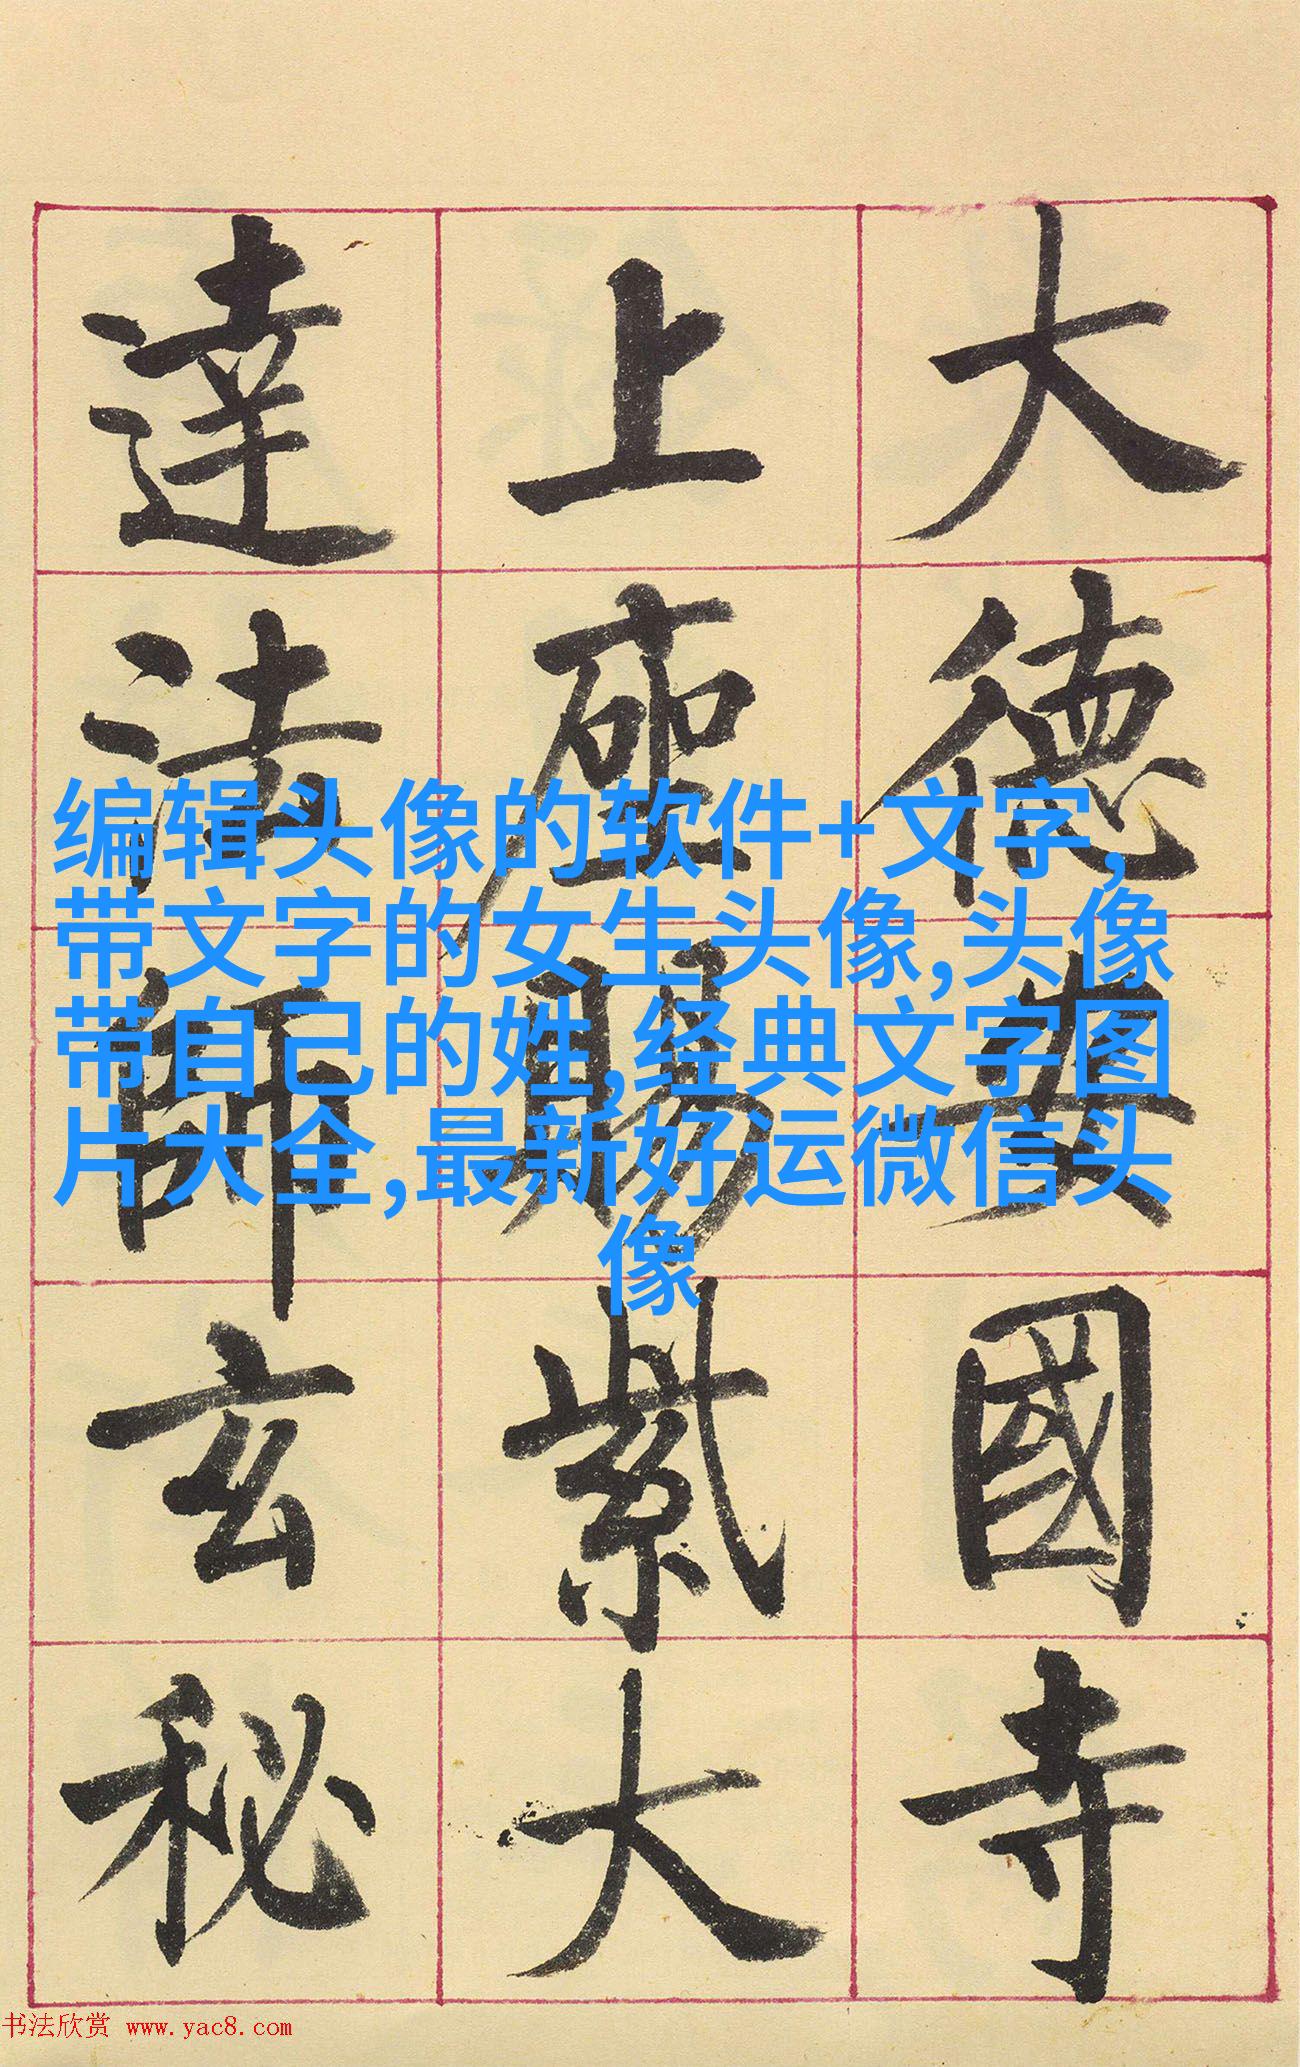 大德安國寺
上座賜紫大
達法師玄秘
编辑头像的软件+文字,
带文字的女生头像,头像
带自己的姓,经典文字图
片大全,最新好运微信头
像
书法欣赏 www.yac8.com